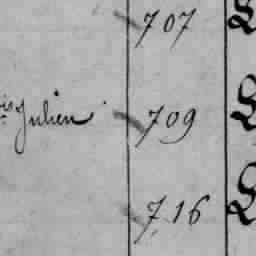 707
Julien 709
716